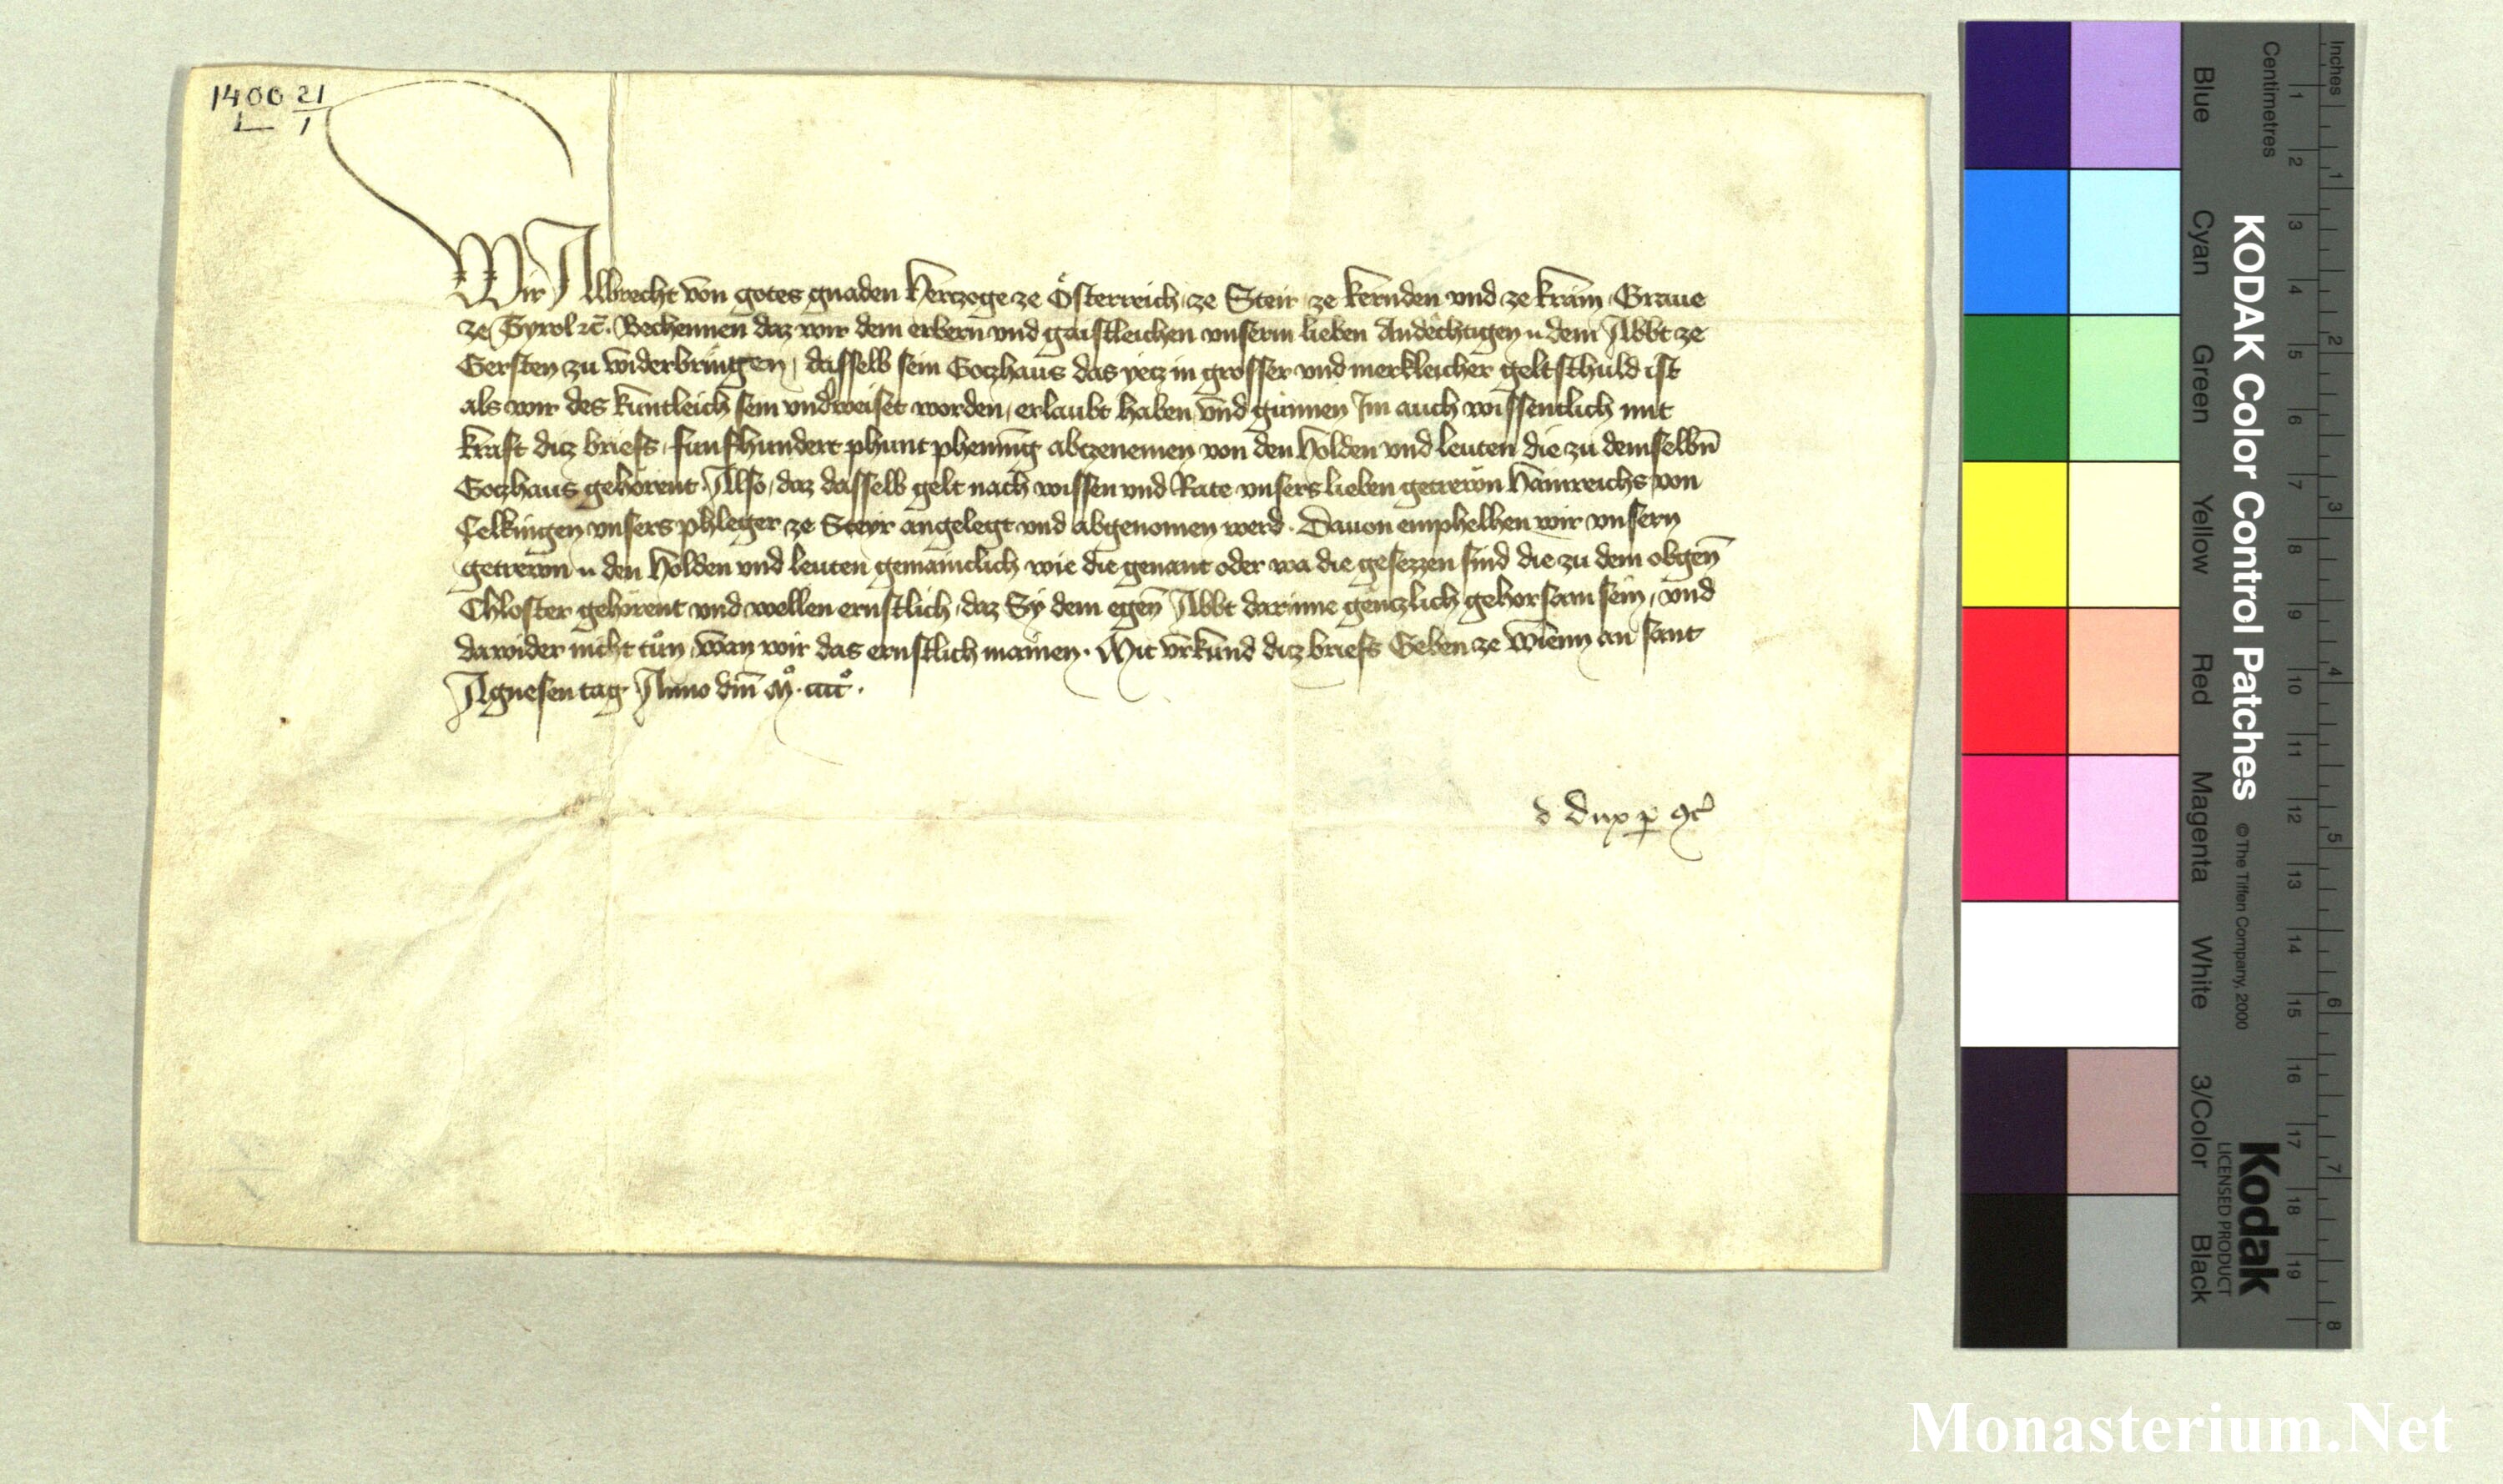 1400 21
I 1
Wir Albrecht von gotes gnaden Hertzoge ze Österreich ze Steir ze kernden vnd ze krain Graue
ze Tyrol ꝛc̄. Bechennen daz wir dem erbern vnd gaistleichen vnserm lieben Andechtigen .. dem Abbt ze
Gersten zu widerbringen, dasselb sein Gotzhaus das yetz in grosser vnd merkleicher geltschuld ist
als wir des kuntleich sein vnderweiset worden, erlaubt haben, vnd gunnen Im auch wissentlich mit
kraft ditz briefs, funfhundert phunt phening abtzenemen von den Holden vnd leuten die zu demselbn̄
Gotzhaus gehörent. Also, daz dasselb gelt nach wissen vnd Rate vnsers lieben getrewn Hainreichs von
Celkingen vnsers phleger ze Steyr angelegt vnd abgenomen werd. Dauon emphelhen wir vnsern
getrewn .. den Holden vnd leuten gemainclich wie die genant oder wa die gesezzen sind die zu dem obgen̄
Chloster gehörent vnd wellen ernstlich, daz Sy dem egen̄ Abbt darinne gentzlich gehorsam sein, vnd
dawider nicht tůn, wan wir das ernstlich mainen. Mit vrkund ditz briefs Geben ze wienn an sant
Agnesen tag Anno dn̄i Mº. ccccº.
d Dux p
KODAK Color Control Patches
© The Tiffen Company, 2000
Kodak
LICENSED PRODUCT
Blue Cyan Green Yellow Red Magenta White 3/Color Black
Centimetres 1 2 3 4 5 6 7 8 9 10 11 12 13 14 15 16 17 18 19
Inches 1 2 3 4 5 6 7 8
Monasterium.Net